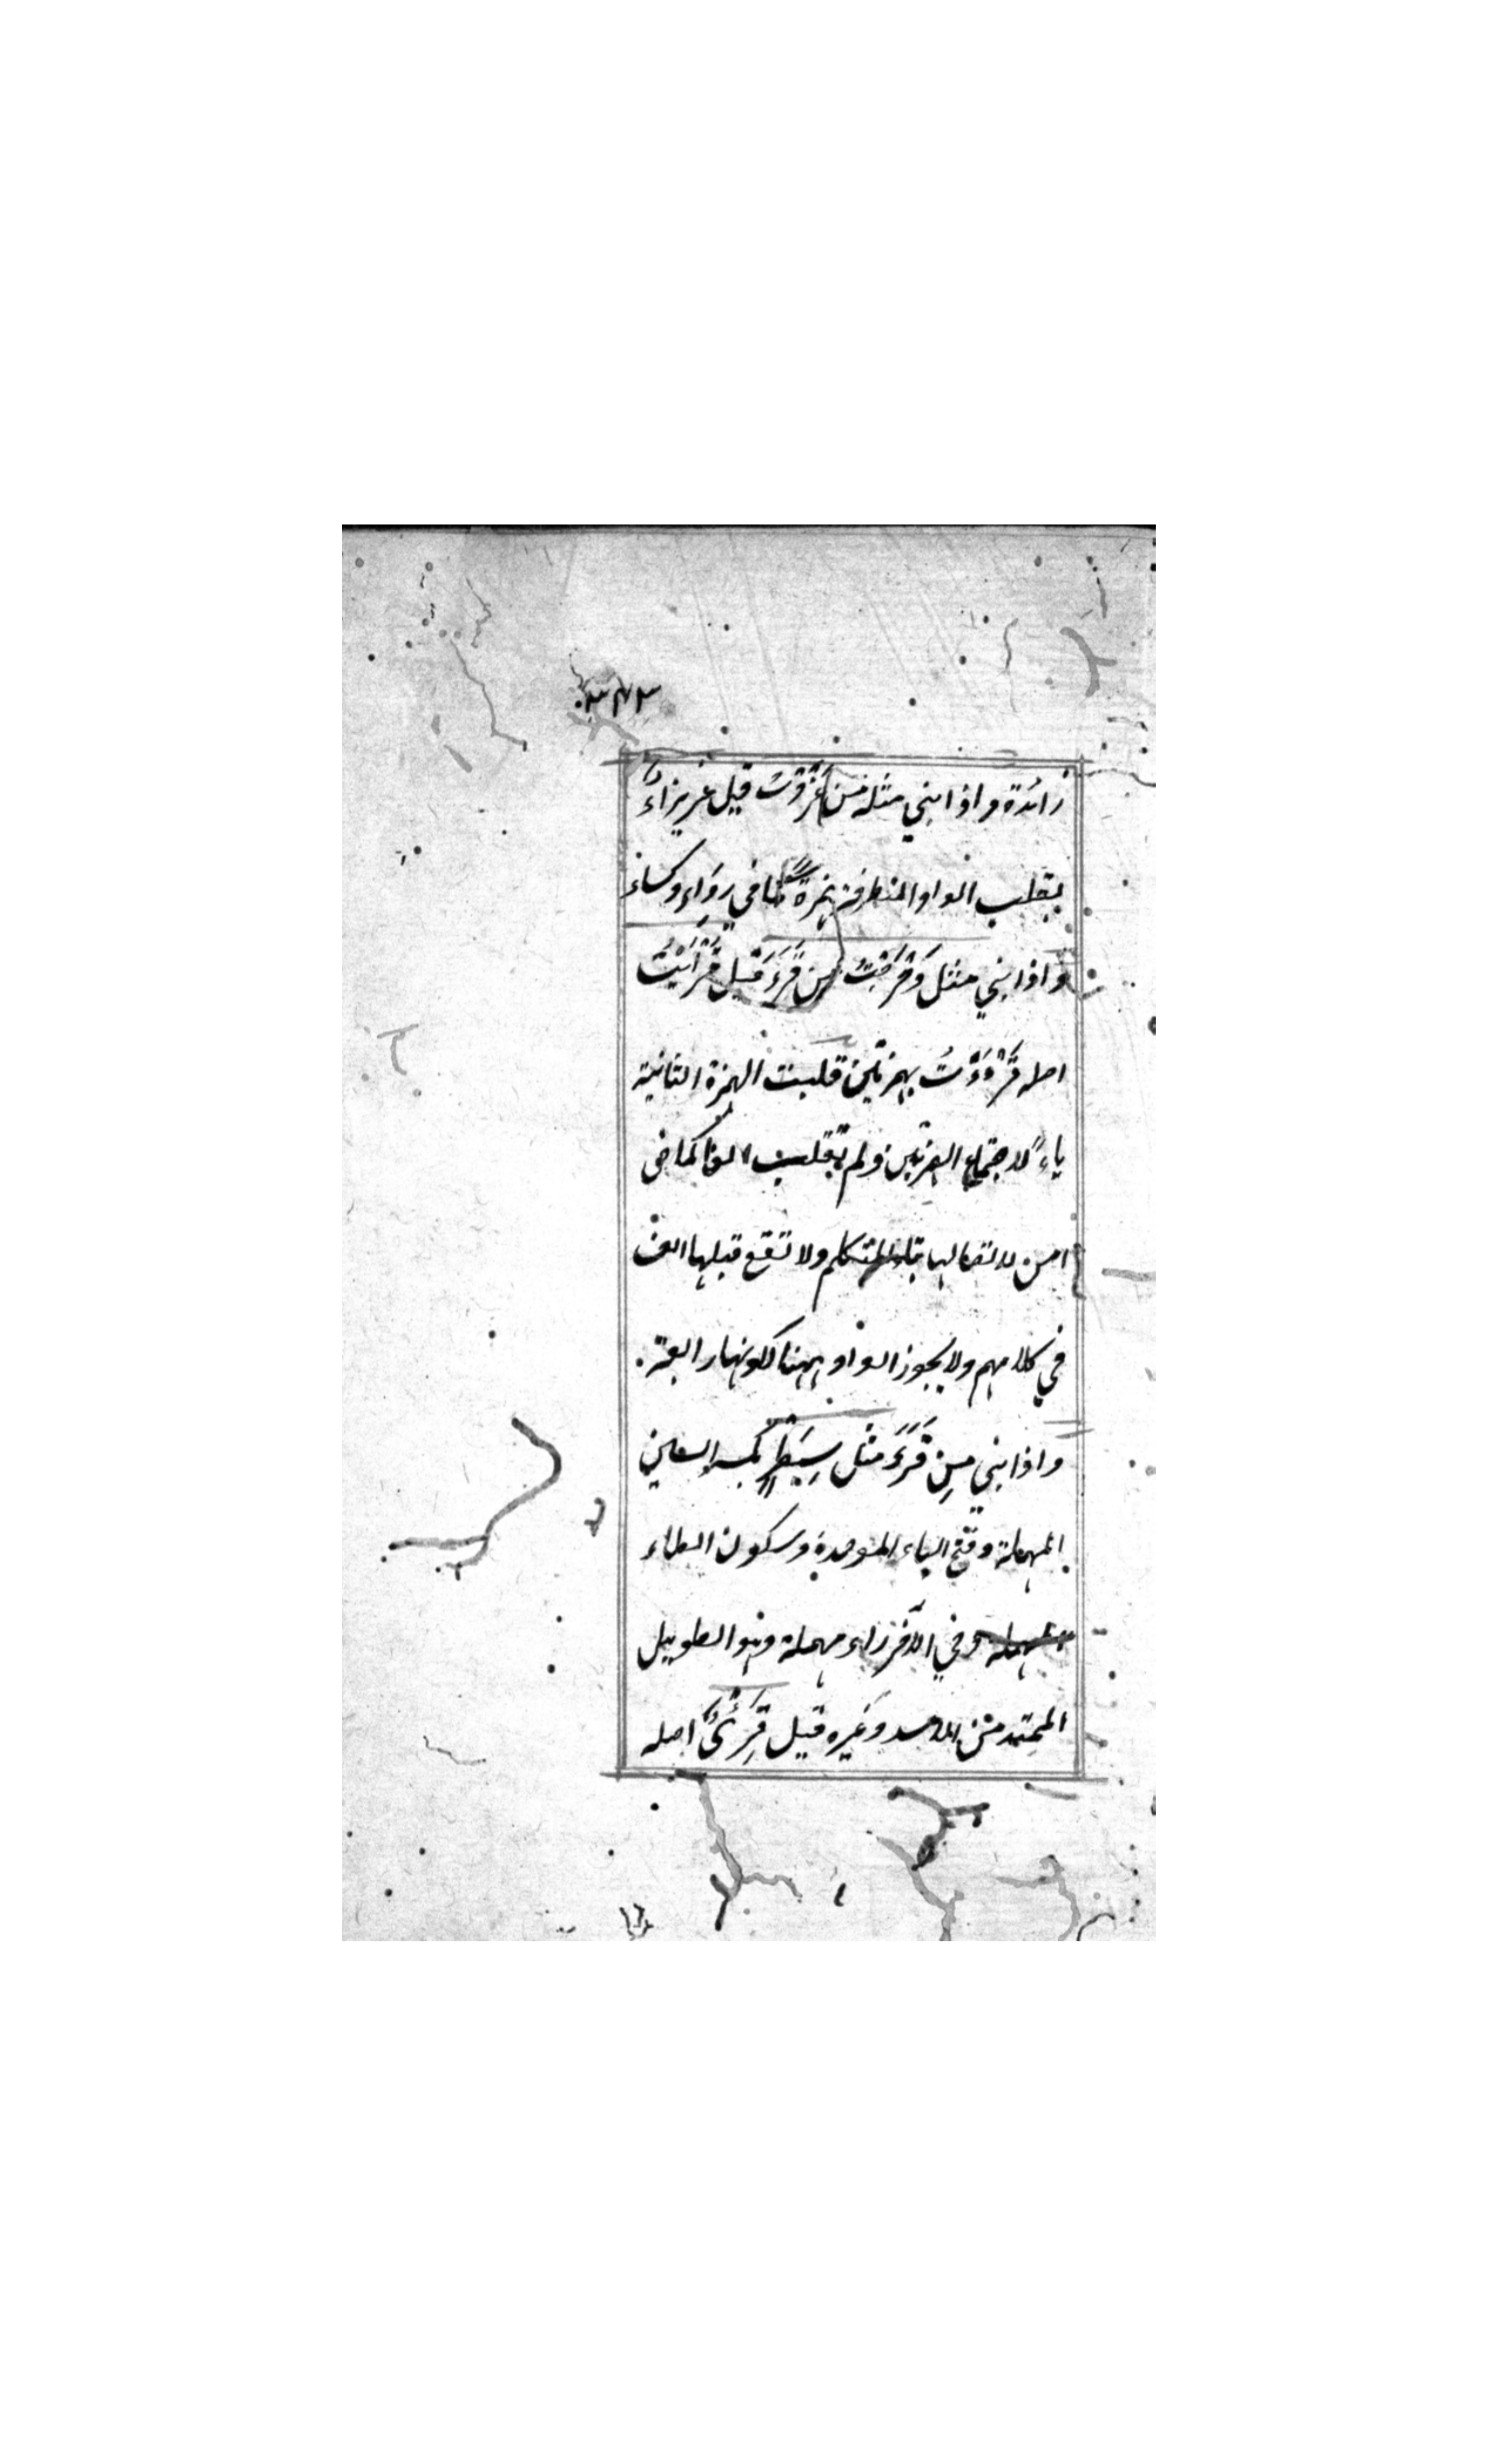 ٣٤٣
زائدة واذا بني مثله من غَزَوْتُ قيل غريزاءٌ
بقلب الواو المتطرفة همزةً كما في رِوَاءٍ وكساءٍ
واذا بني مثل دَحْرَجْتُ من قَرَءَ قيل قَرْأَيْتُ
اصله قَرْءَءْتُ بهمزتين قلبت الهمزة الثانية
ياءً لاجتماع الهمزتين ولم تقلب الفا كما في
امن لاتصالها بتاء المتكلم ولا تقع قبلها الف
في كلامهم ولا يجوز الواو ههنا لكونها رابعة.
واذا بني مِن قَرَءَ مثل سِبَطْرٍ بكسر السين
المهملة وفتح الباء الموحدة وسكون الطاء
المهملة وفي الآخر راء مهملة وهو الطويل
الممتد من الاسد وغيره قيل قِرَءْىٌ اصله